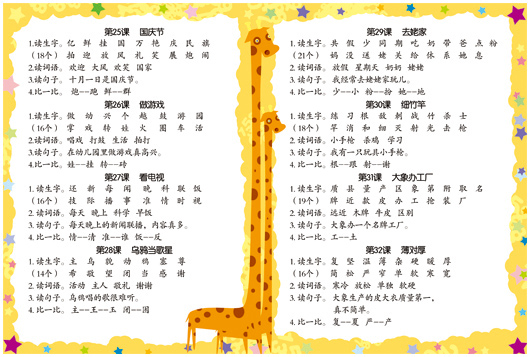 第25课 国庆节
1.读生字。亿 鲜 挂 国 万 艳 庆 民 旗
(18个) 拍 迎 放 风 礼 笑 晨 炮 闹
2.读词语。欢迎 火风 欢笑 国家
3.读句子。十月一日是国庆节。
4.比一比。炮--跑 很--跟
第26课 做游戏
1.读生字。做 动 兴 个 越 鼓 游 园
(16个) 掌 戏 转 娃 火 围 奉 活
2.读词语。唱戏 打鼓 生活 拍打
3.读句子。在幼儿园里做游戏真高兴。
4.比一比。娃--挂 转--砖
第27课 看电视
1.读生字。还 新 每 闻 晚 科 联 饭
(16个) 技 际 播 事 准 情 时 视
2.读词语。每天 晚上 科学 早饭
3.读句子。每天晚上的新闻联播,内容真多。
4.比一比。情--清 准--谁 饭--反
第28课 乌鸦当歌星
1.读生字。主 乌 貌 动 鸦 塞 尊
(14个) 希 敬 望 闭 当 感 谢
2.读词语。活动 主人 敬礼 谢谢
3.读句子。乌鸦唱的歌很难听。
4.比一比。主--王--玉 闭--困
第29课 去姥家
1.读生字。共 假 少 同 期 吃 奶 带 爸 点 粉
(21个) 妈 没 送 姥 关 给 休 系 她 息
2.读词语。放假 星期天 奶奶 姥姥
3.读句子。我经常去姥姥家玩儿。
4.比一比。少--小 粉--扮 她--地
第30课 细竹竿
1.读生字。练 习 根 敌 刺 战 竹 杀 士
(18个) 竿 消 和 细 灭 射 光 击 枪
2.读词语。小手枪 杀鸡 学习
3.读句子。我有一只玩具小手枪。
4.比一比。根--跟 射--谢
第31课 大象办工厂
1.读生字。质 县 董 产 区 象 第 附 取 名
(19个) 牌 近 款 皮 办 工 抢 装 厂
2.读词语。远近 木牌 牛皮 区别
3.读句子。大象办一个名牌工厂。
4.比一比。工--土
第32课 薄对厚
1.读生字。复 坚 温 薄 杂 硬 暖 厚
(16个) 简 松 严 窄 单 软 寒 宽
2.读词语。寒冷 放松 单独 软硬
3.读句子。大象生产的皮大衣质量第一,
真不简单。
4.比一比。复--夏 严--产